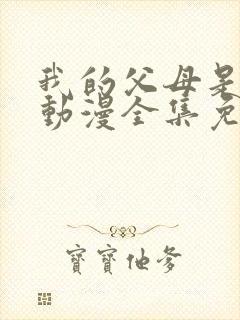 我的父母是
動漫全集免
寶寶他爹